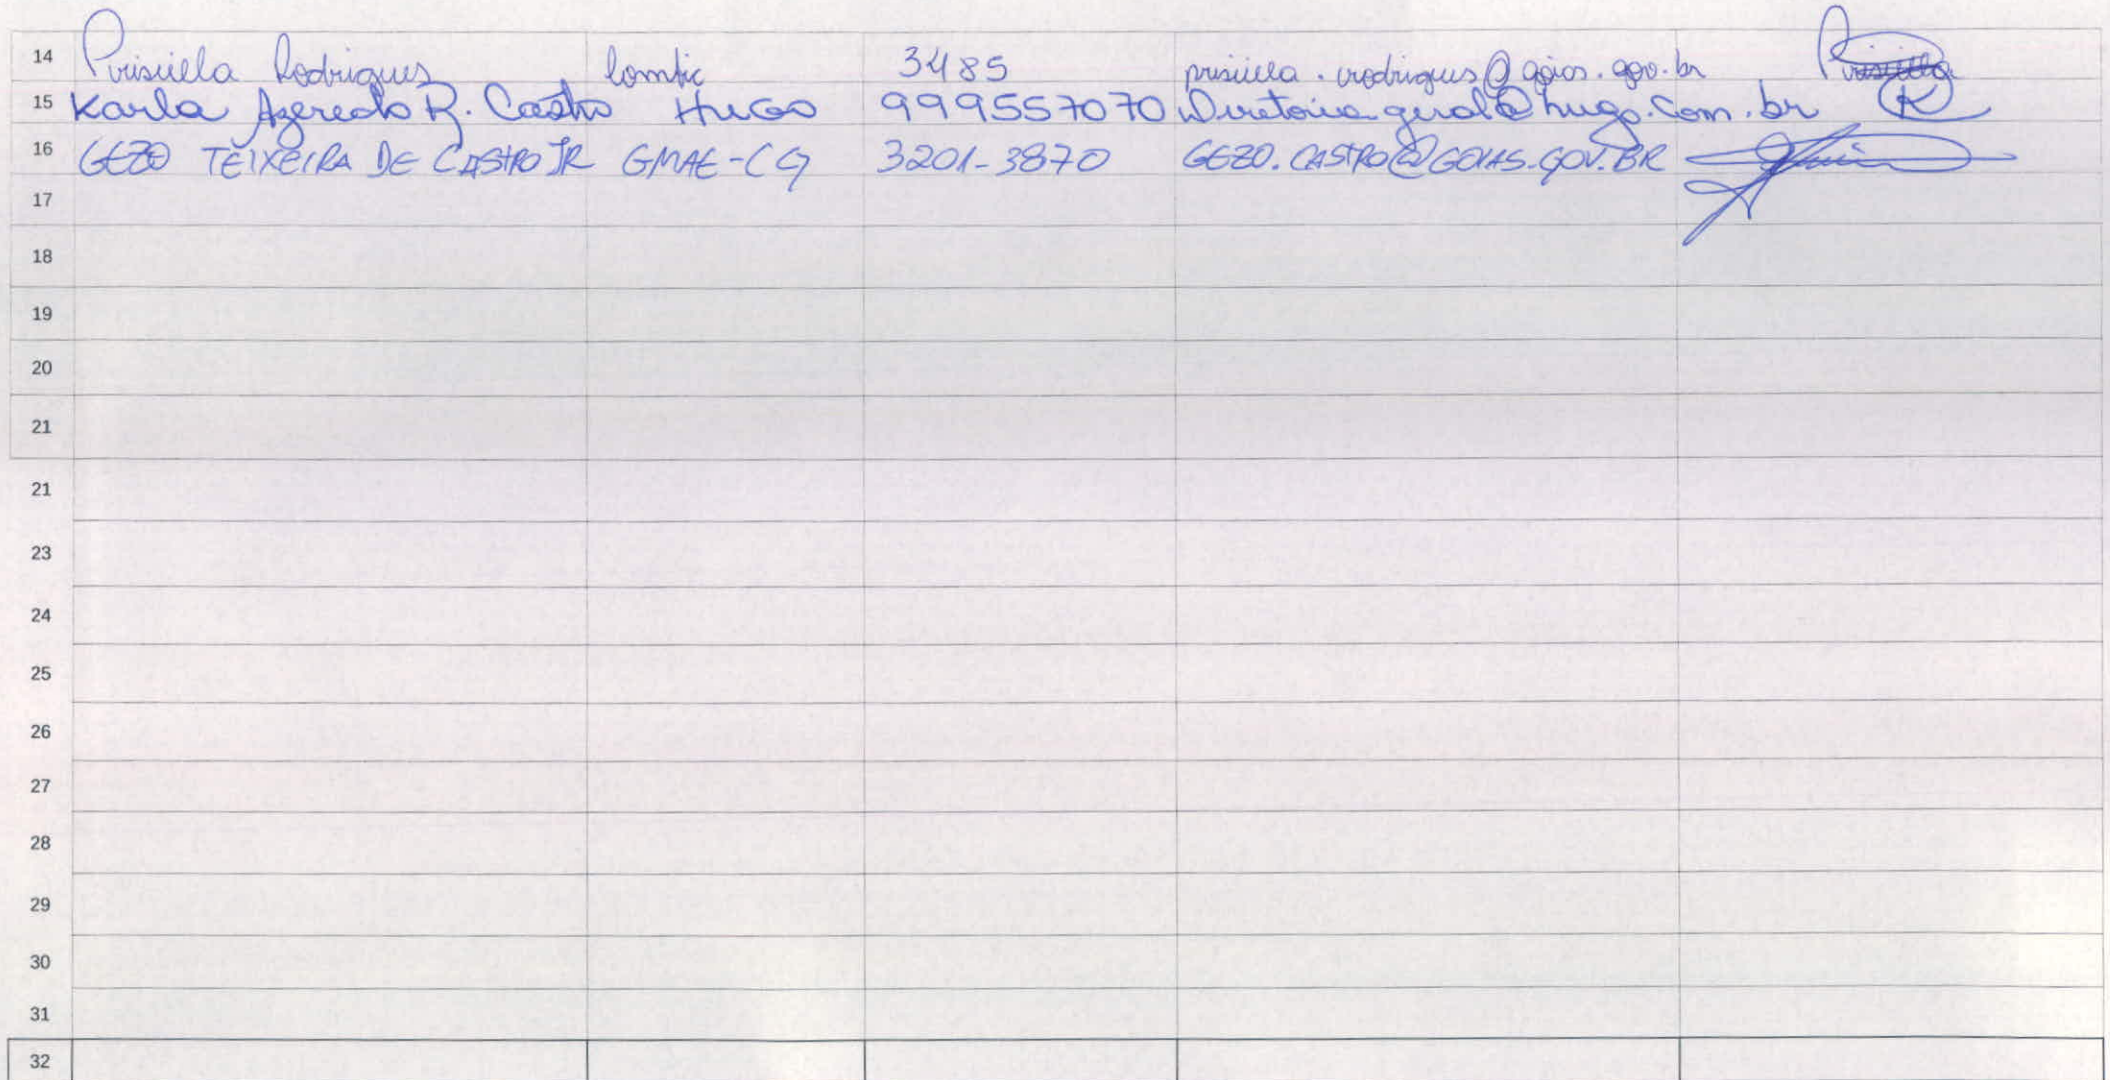 14 Priscilla Rodrigues Comfic 3485 priscilla.rodrigues@goias.gov.br Priscilla
15 Karla Azeredo R. Castro HUGO 999557070 Diretoria.geral@hugo.com.br R
16 GEZO TEIXEIRA DE CASTRO JR GMAE-CG 3201-3870 GEZO.CASTRO@GOIAS.GOV.BR
17
18
19
20
21
21
23
24
25
26
27
28
29
30
31
32